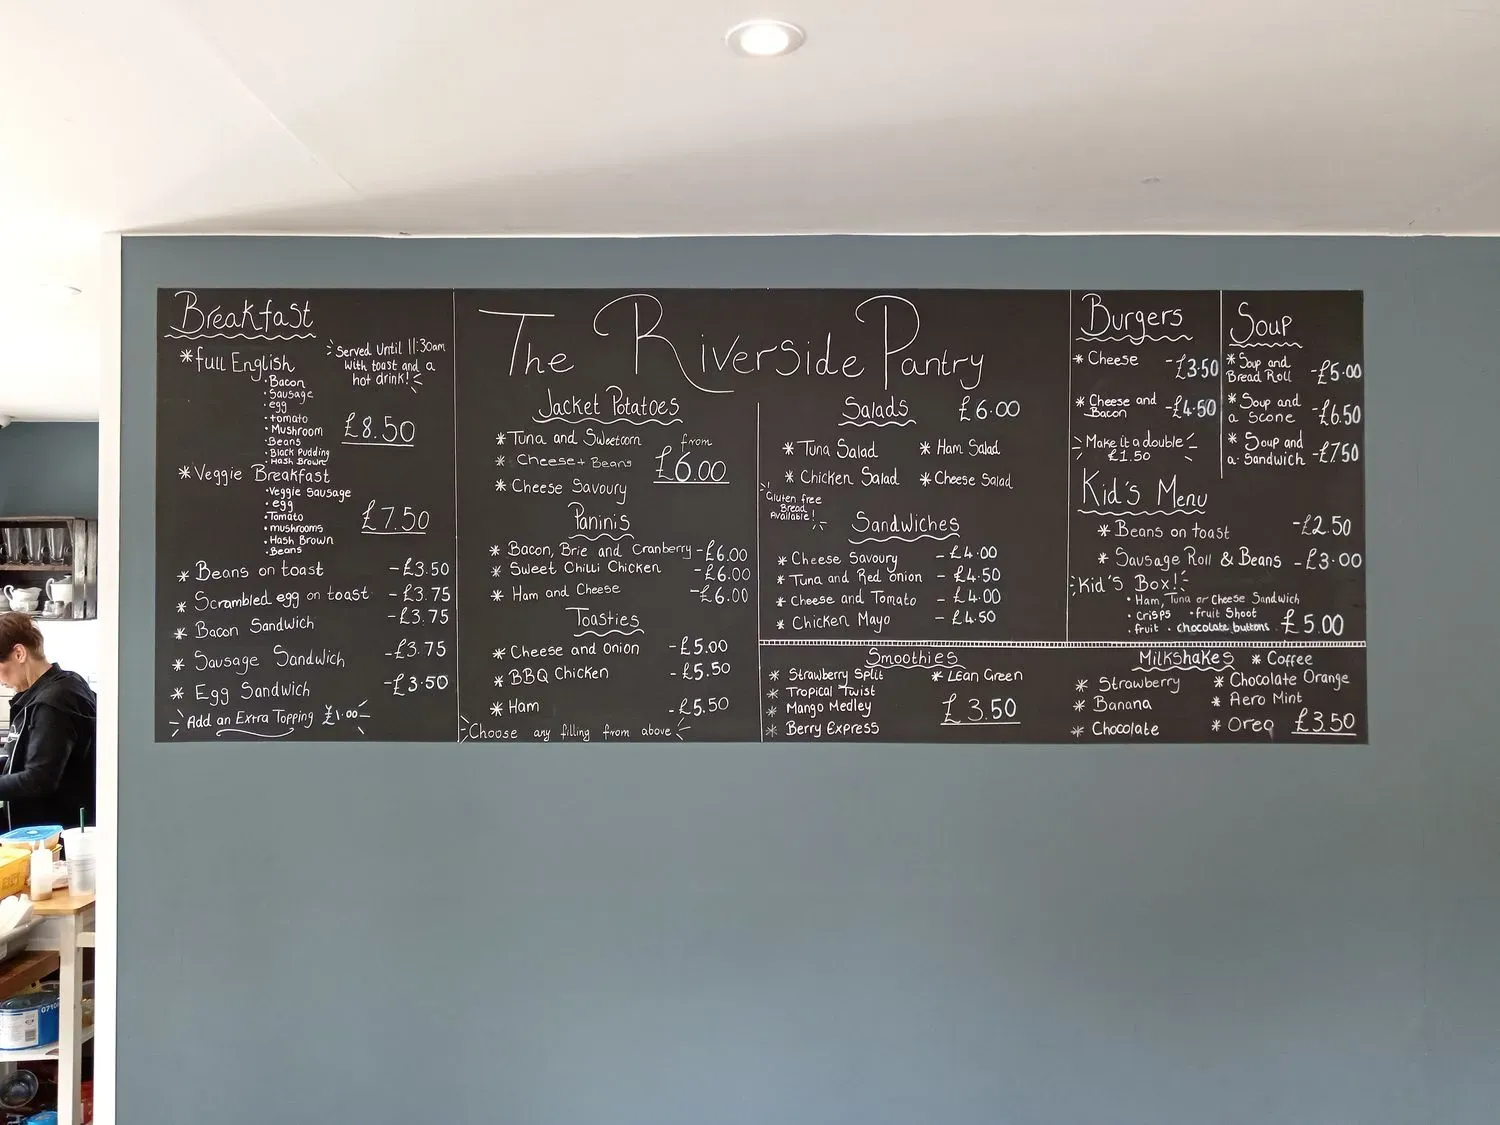 Breakfast
*full English
Served Until 11:30am
with toast and a
hot drink!
• Bacon
• Sausage
• egg
• tomato
• Mushroom
• Beans
• Black Pudding
• Hash Brown
£8.50
*Veggie Breakfast
• Veggie Sausage
• egg
• Tomato
• mushrooms
• Hash Brown
• Beans
£7.50
* Beans on toast -£3.50
* Scrambled egg on toast -£3.75
* Bacon Sandwich -£3.75
* Sausage Sandwich -£3.75
* Egg Sandwich -£3.50
Add an Extra Topping £1.00
The Riverside Pantry
Jacket Potatoes
*Tuna and Sweetcorn
* Cheese + Beans
* Cheese Savoury
from
£6.00
Paninis
* Bacon, Brie and Cranberry -£6.00
* Sweet Chilli Chicken -£6.00
* Ham and Cheese -£6.00
Toasties
* Cheese and Onion -£5.00
* BBQ Chicken -£5.50
* Ham -£5.50
Choose any filling from above
Salads £6.00
* Tuna Salad * Ham Salad
* Chicken Salad * Cheese Salad
Gluten free
Bread
Available!
Sandwiches
* Cheese Savoury - £4.00
* Tuna and Red onion - £4.50
* Cheese and Tomato - £4.00
* Chicken Mayo - £4.50
Smoothies
* Strawberry Split * Lean Green
* Tropical Twist
* Mango Medley
* Berry Express
£3.50
Burgers
* Cheese -£3.50
* Cheese and
Bacon -£4.50
Make it a double
£1.50
Soup
* Soup and
Bread Roll -£5.00
* Soup and
a Scone -£6.50
* Soup and
a Sandwich -£7.50
Kid's Menu
* Beans on toast -£2.50
* Sausage Roll & Beans -£3.00
Kid's Box!
• Ham, Tuna or Cheese Sandwich
• crisps • fruit Shoot
• fruit • chocolate buttons £5.00
Milkshakes * Coffee
* Strawberry * Chocolate Orange
* Banana * Aero Mint
* Chocolate * Oreo £3.50